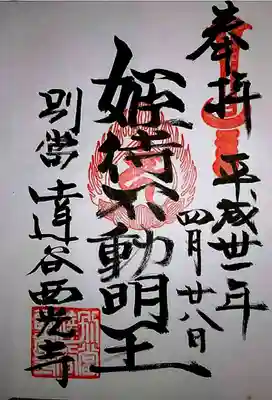 奉拝
平成卅一年
四月廿八日
姫待不動明王
別當
達谷西光寺